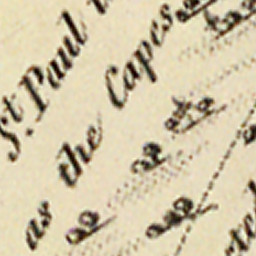 St. Paul
as the Capes